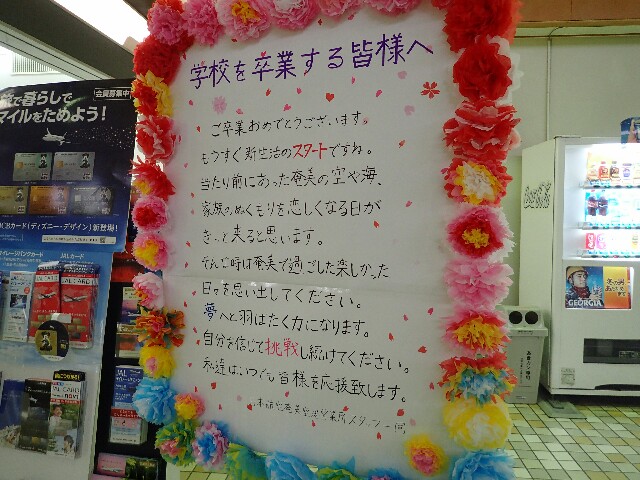 学校を卒業する皆様へ
ご卒業おめでとうございます。
もうすぐ新生活のスタートですね。
当たり前にあった奄美の空や海、
家族のぬくもりを恋しくなる日が
きっと来ると思います。
そんな時は奄美で過ごした楽しかった
日々を思い出してください。
夢へと羽ばたく力になります。
自分を信じて挑戦し続けてください。
私達はいつでも皆様を応援致します。
日本航空奄美空港営業所スタッフ一同
会員募集中
で暮らして
マイルをためよう!
JCBカード(ディズニー・デザイン)新登場!
JALカード
JAL CARD
GEORGIA